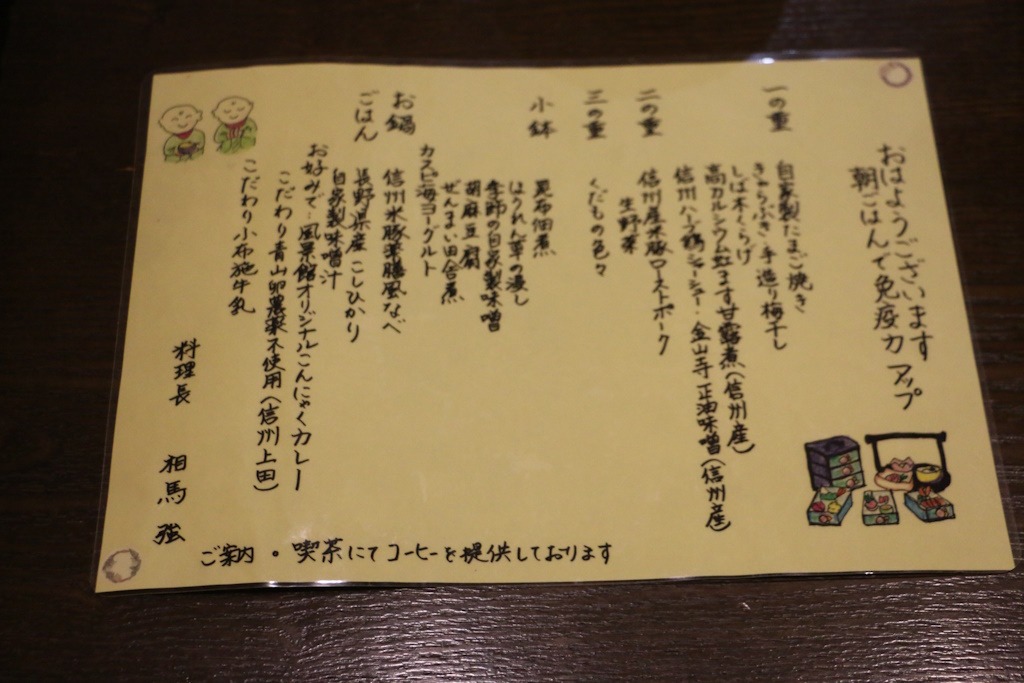 おはようございます
朝ごはんで免疫力アップ
一の重
自家製たまご焼き
きゃらぶき・手造り梅干し
しば木くらげ
高カルシウム虹ます甘露煮(信州産)
信州ハーブ鶏シューシュー・金山寺正油味噌(信州産)
二の重
信州産米豚ローストポーク
生野菜
三の重
くだもの色々
小鉢
昆布佃煮
ほうれん草の浸し
季節の自家製味噌
胡麻豆腐
ぜんまい田舎煮
カスピ海ヨーグルト
お鍋
信州米豚薬膳風なべ
ごはん
長野県産こしひかり
自家製味噌汁
お好みで…風景館オリジナルこんにゃくカレー
こだわり青山卵農薬不使用(信州上田)
こだわり小布施牛乳
料理長 相馬 強
ご案内・喫茶にてコーヒーを提供しております